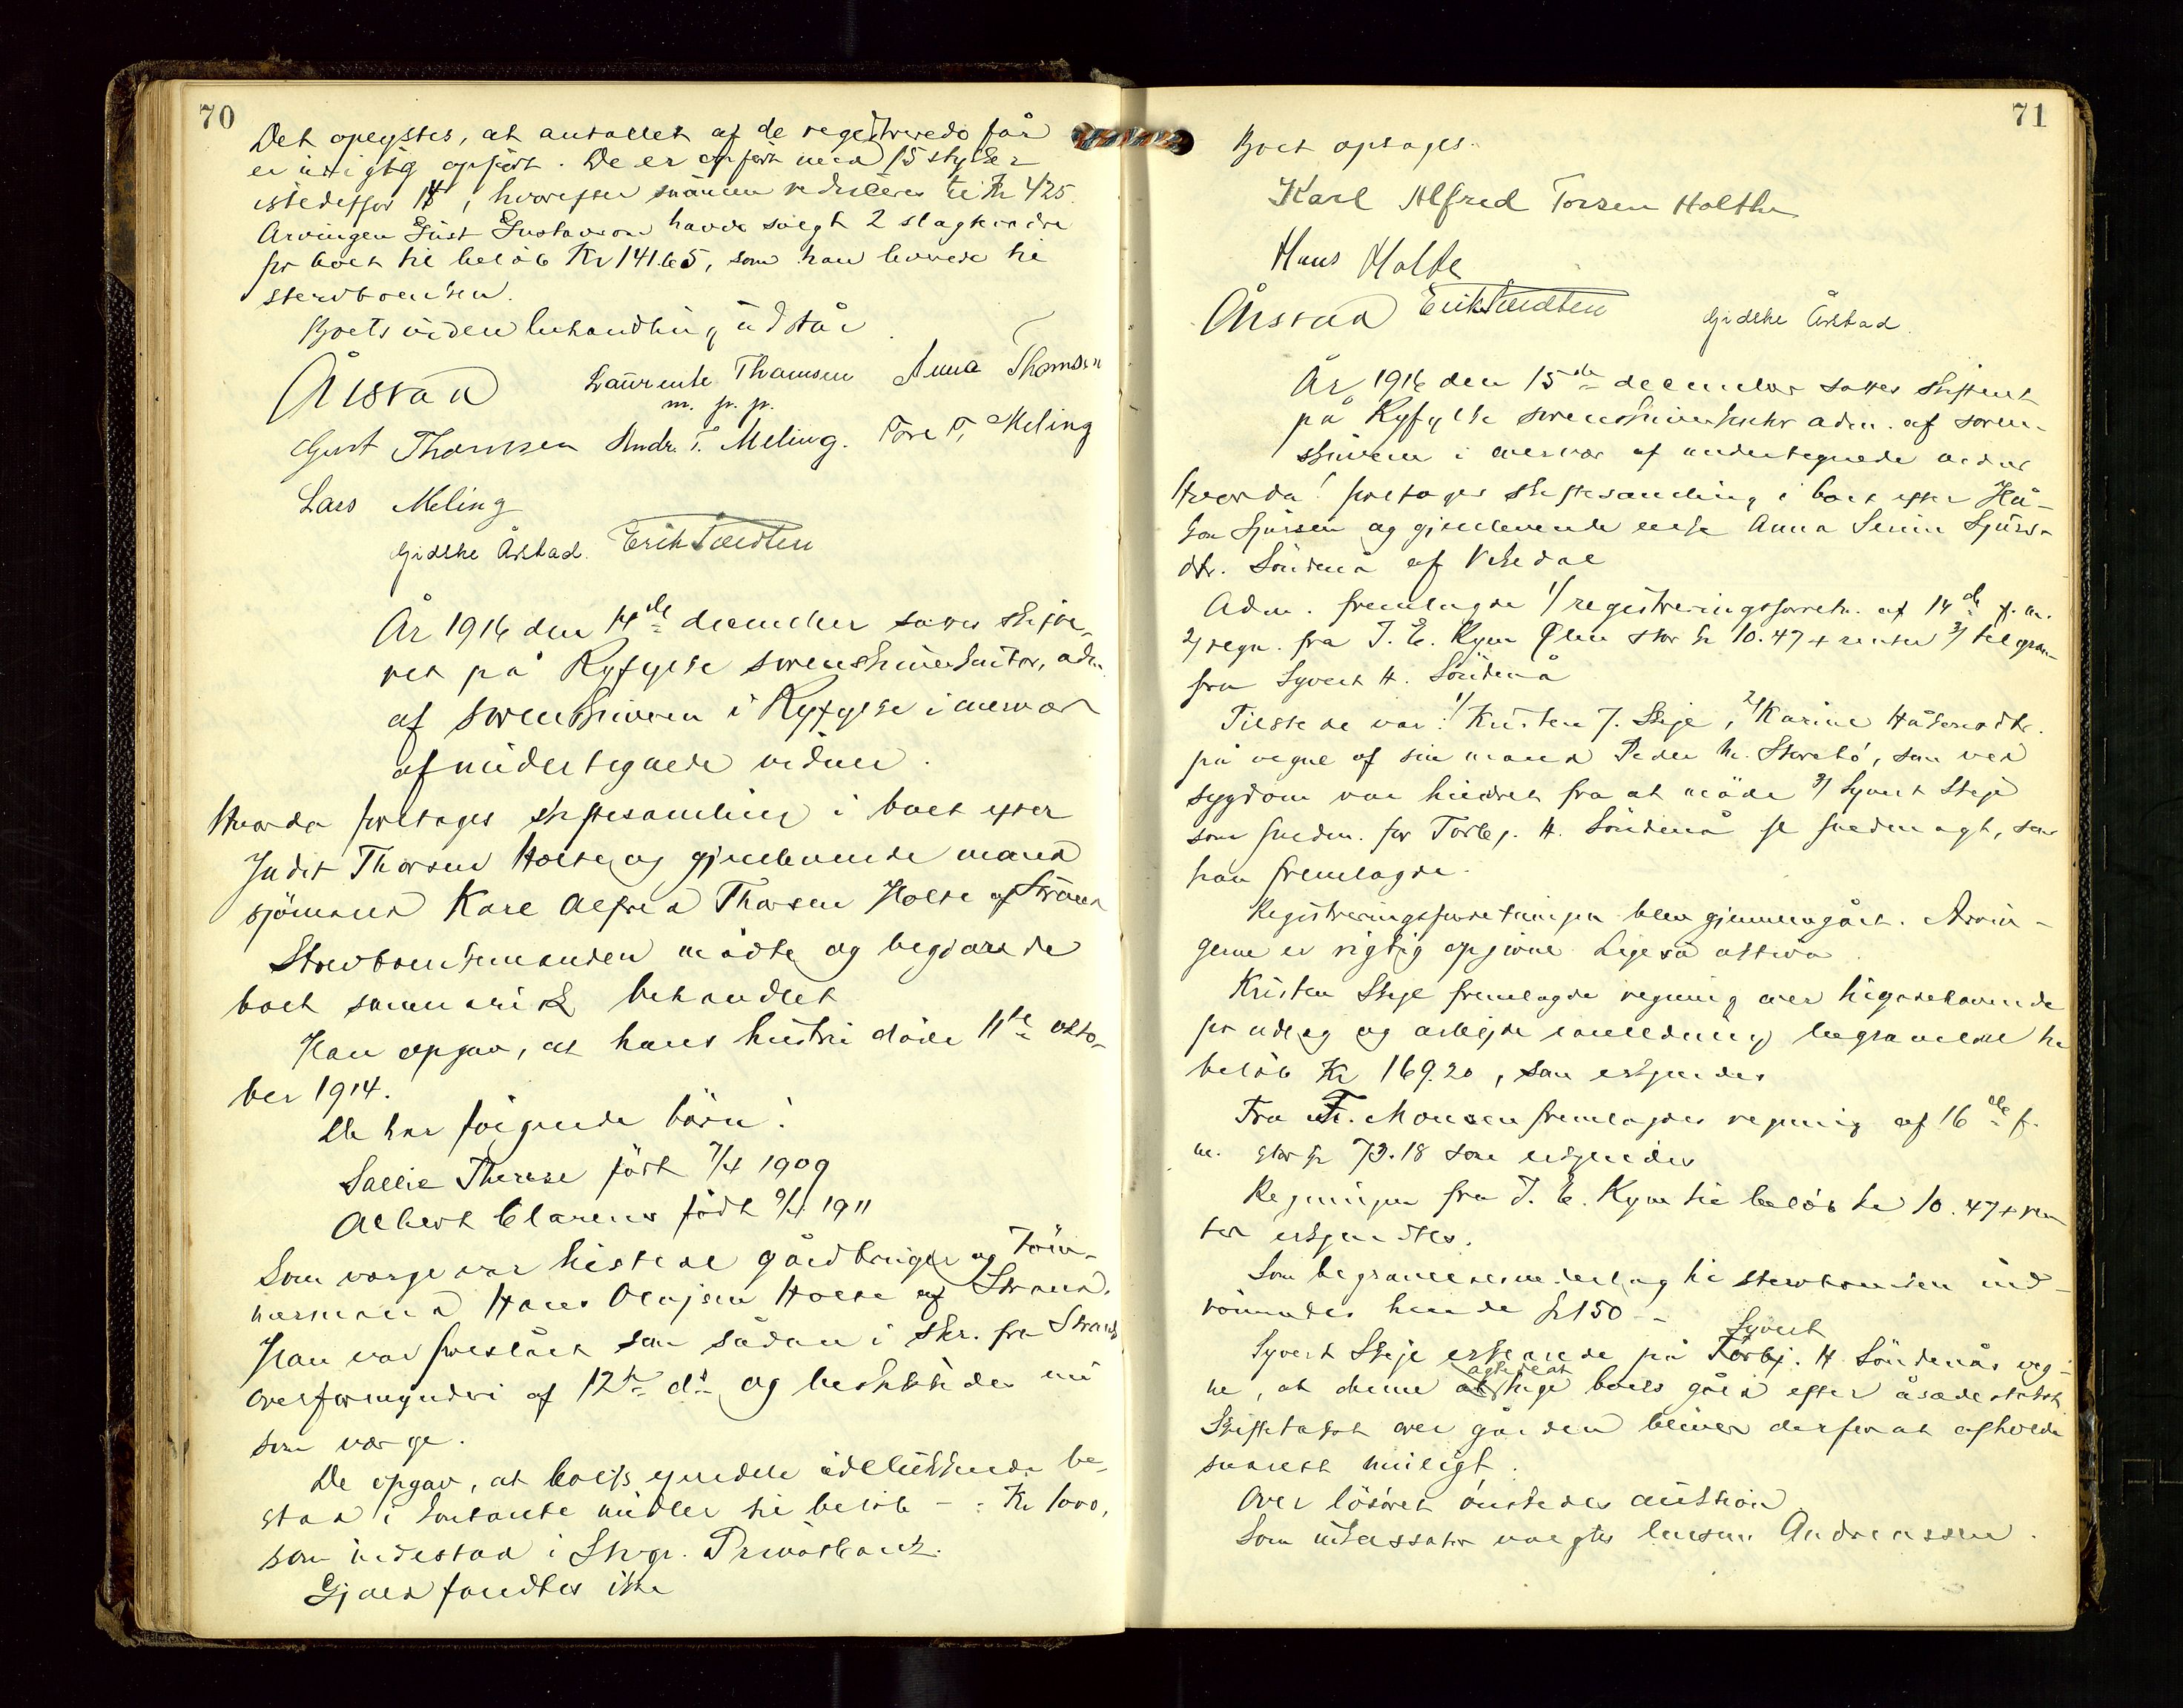 70
Det oplystes, at antallet af de registrerede får
er urigtig opført. De er opført med 15 stykker
istedetfor 14, hvorefter summen reduceres til Kr 425.
Arvingen Gust Gustavson havde solgt 2 slagtekrør
for boet til beløb Kr 141.65, som han leverede til
stervboenken.
Boets viden behandling udstår
Årstad Laurentse Thomsen Anna Thomsen
m. p. p.
Gust Thomsen Andr. T. Meling. Tore T. Meling
Lars Meling
Gidske Årstad. Erik Tendten
År 1916 den 14de december sattes skifte-
ret på Ryfylke sorenskriverkontor, adm.
af sorenskriveren i Ryfylke i nærvær
af undertegnede vidner.
Hvorda foretoges skiftesamling i boet efter
Judit Thorsen Holte og gjenlevende mand
sjømand Karl Alfred Thorsen Holte af Strand
Stervboenkemanden mødte og begjærede
boet summarisk behandlet
Han opgav, at hans hustru døde 11te okto-
ber 1914.
De har følgende børn:
Sallie Therese født 7/4 1909
Albert Clarens født 9/4 1911
Som verge var tilstede gårdbruger og tøm-
mermand Hans Olajsen Holte af Strand.
Han var foreslået som sådan i skr. fra Strand
overformynderi af 12te ds og beskikkedes nu
som verge.
De opgav, at boets eiendele udelukkende be-
stod i kontante midler til beløb - : Kr 1000,
som indestod i Stvgr. Privatbank.
Gjæld fandtes ikke
71
Boet optages.
Karl Alfred Torsen Holthe
Hans Holte
Årstad Erik Tendten Gidske Årstad.
År 1916 den 15de december sattes skifteret
på Ryfylke sorenskriverkontor adm. af soren-
skriveren i nærvær af undertegnede vidner
Hvorda! foretoges skiftesamling i boet efter Hå-
kon Sjursen og gjenlevende enke Anna Serine Sjurs-
dtr. Søndenå af Vikedal
Adm. fremlagde 1/ registreringsforretn. af 14de f. m.
2/ regn. fra J. E. Kym Ølen stor kr 10.47 + renter 3/ telegram
fra Syvert H. Søndenå
Tilstede var: 1/ Kristen J. Skeje, 2/ Karine Håkonsdtr.
på vegne af sin mand Peder M. Størebø, som ved
sygdom var hindret fra at møde 3/ Syvert Skeje
som fuldm. for Torbj. H. Søndenå if fuldmagt, som
han fremlagde.
Registreringsforretningen blev gjennemgået. Arvin-
gerne er rigtig opgivne Ligeså aktiva.
Kristen Skeje fremlagde regning over tilgodehavende
for udlæg og arbejde i anledning begravelse til
beløb Kr 169.20, som erkjendes
Fra Fr. Monsen fremlagdes regning af 16de f.
m. stor kr 73.18 som erkjendes
Regningen fra J. E. Kym til beløb kr 10.47 + ren-
ter erkjendtes.
Som begravelsesvederlag til stervboenken ind-
rømmedes hende kr 150 --
Syvert
Syvert Skeje erklærede på Torbj. H. Søndenås veg-
agtede at
ne, at denne at tage boets gård efter åsædestakst
Skiftetakst over gården bliver derfor at afholde
snarest muligt.
Over løsøret ønskedes auktion
Som inkassator valgtes lensm. Andreassen.